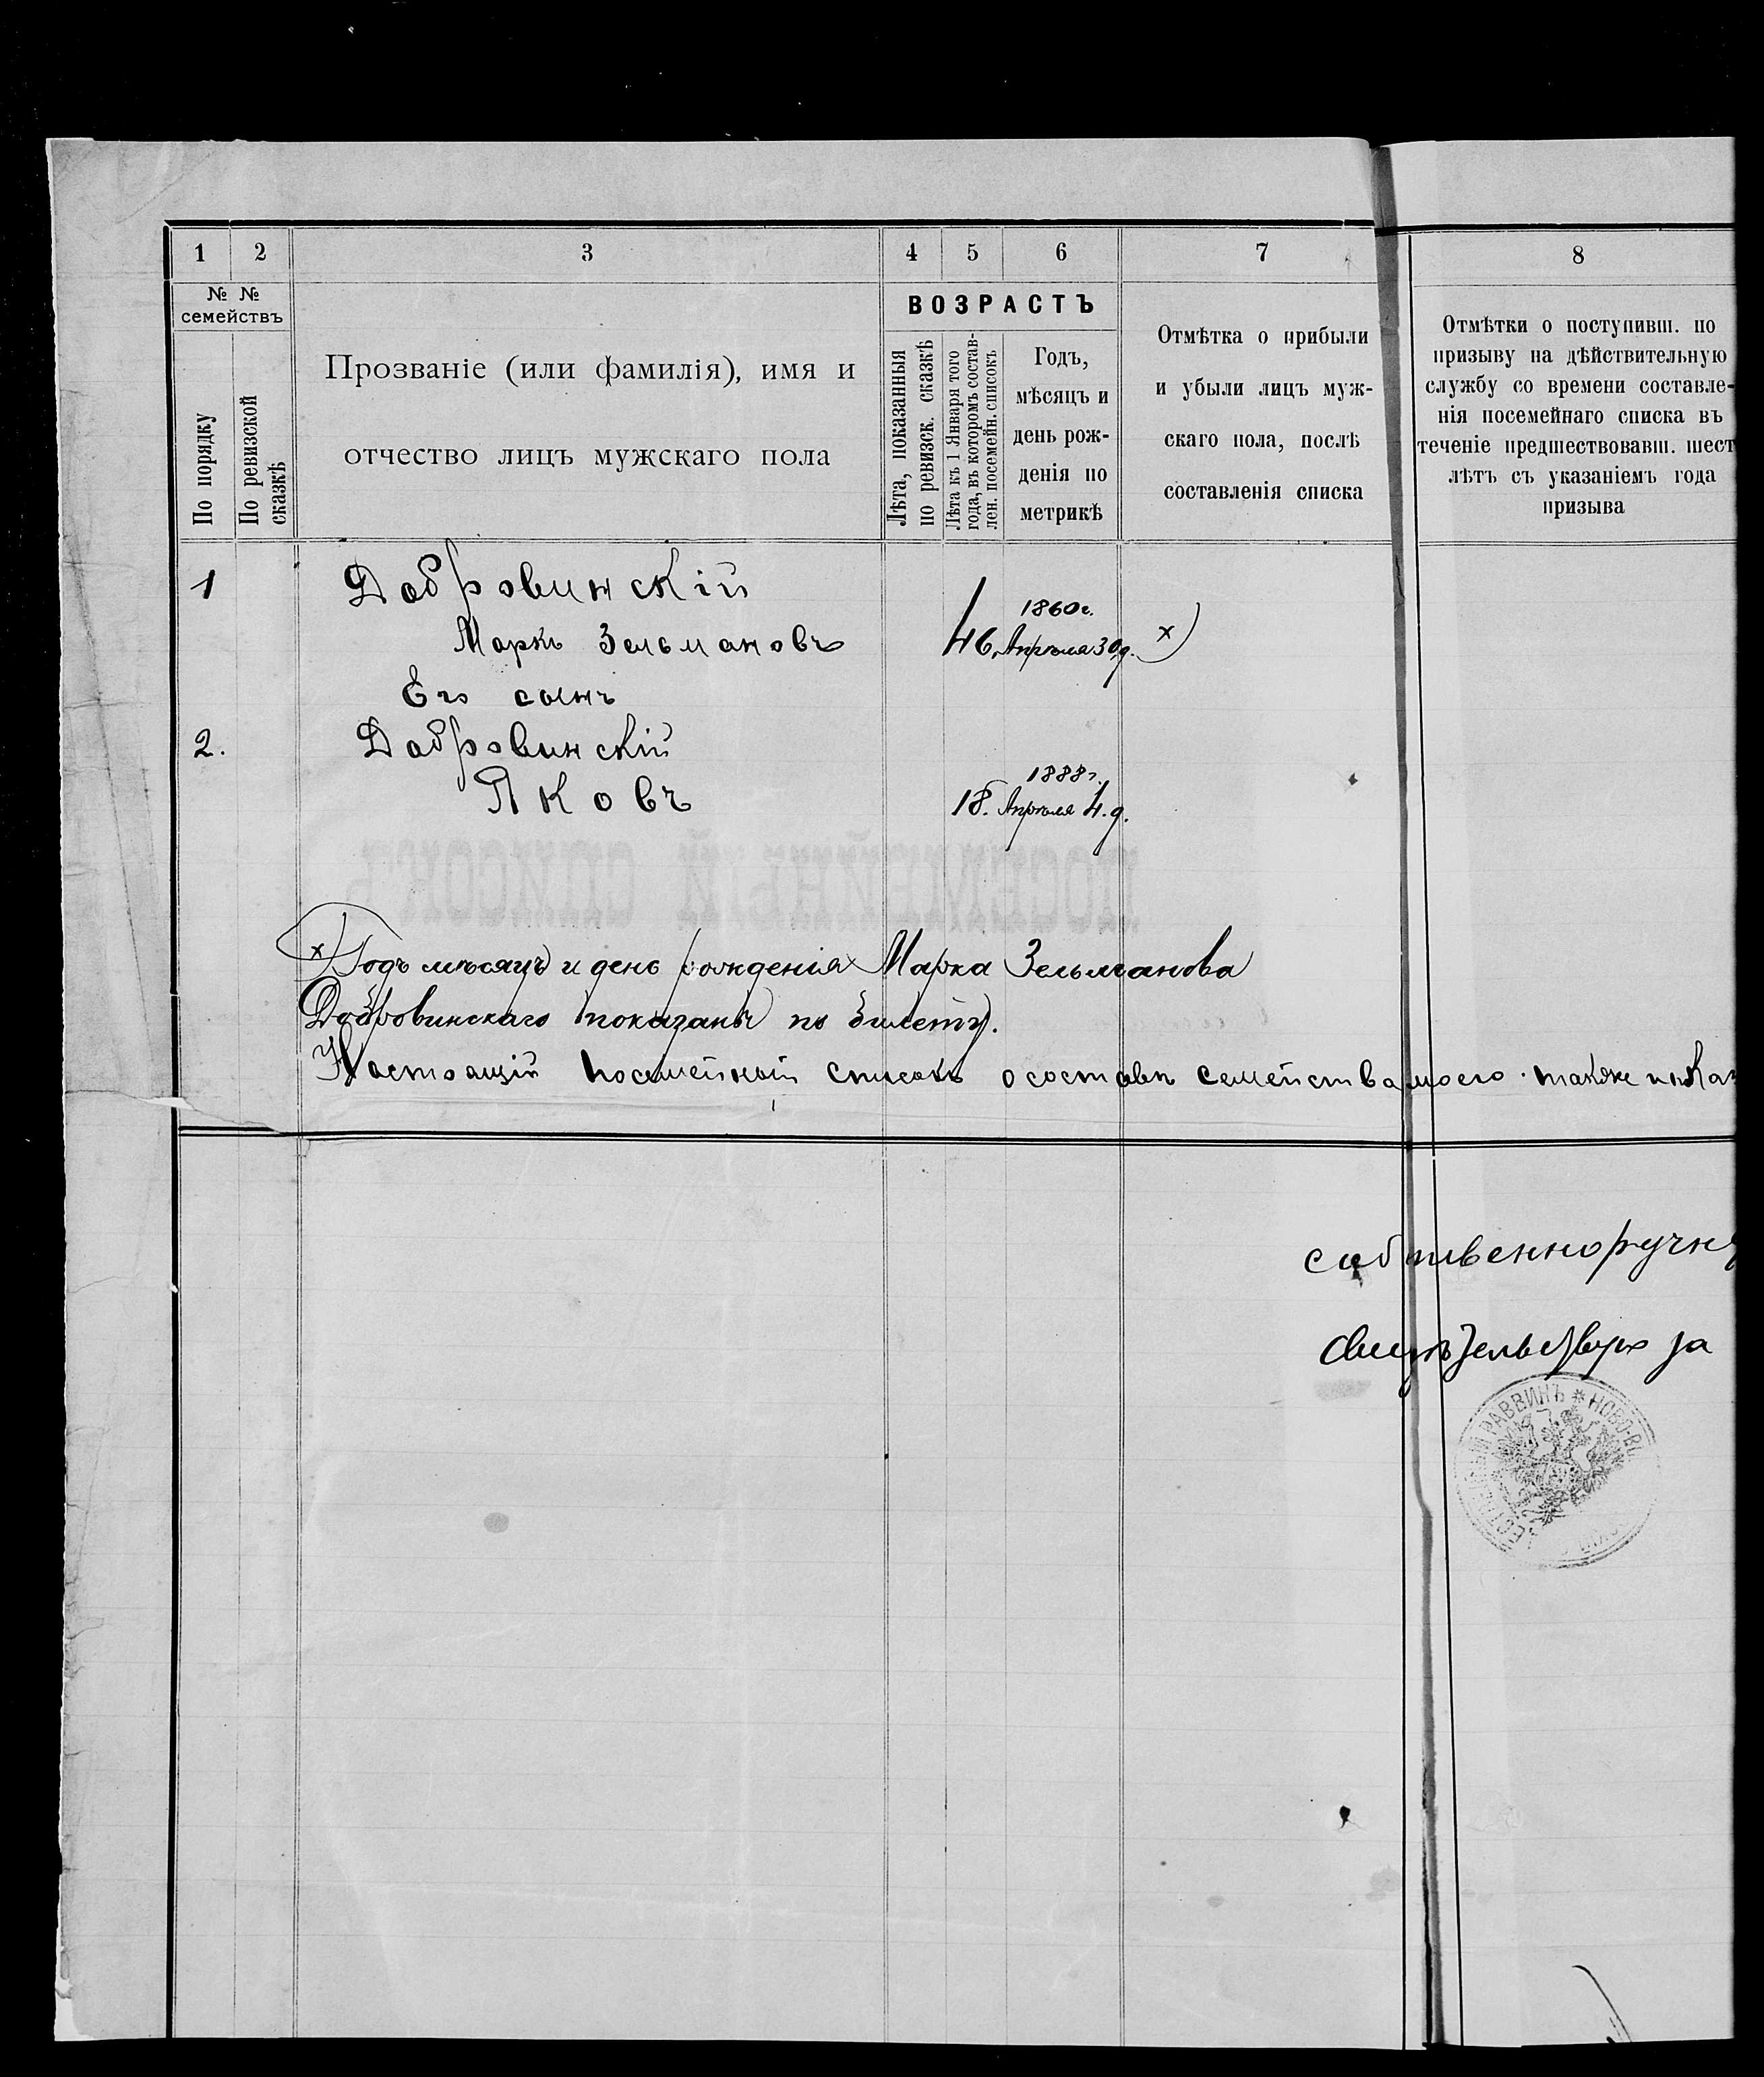 1 2 3 4 5 6 7 8
№ № семействъ
По порядку
По ревизской сказкѣ
Прозваніе (или фамилія), имя и
отчество лицъ мужскаго пола
ВОЗРАСТЪ
Лѣта, показанныя
по ревизск. сказкѣ
Лѣта къ 1 Января того
года, въ которомъ состав-
лен. посемейн. списокъ
Годъ,
мѣсяцъ и
день рож-
денія по
метрикѣ
Отмѣтка о прибыли
и убыли лицъ муж-
скаго пола, послѣ
составленія списка
Отмѣтки о поступивш. по
призыву на дѣйствительную
службу со времени составле-
нія посемейнаго списка въ
теченіе предшествовавш. шест
лѣтъ съ указаніемъ года
призыва
1 Добровинскій
1860 г.
Маркъ Зельмановъ 46. Апрѣля 30 д. x)
Его сынъ
2. Добровинскій
1888 г.
Яковъ 18. Апрѣля 4. д.
ПОСЕМЕЙНЫЙ СПИСОКЪ
x) Годъ мѣсяцъ и день рожденія Марка Зельманова
Добровинскаго показанъ по билету.
Настоящій посемейный списокъ о составѣ семейства моего также и
собственноручн
Свидѣтельствую за
РАВВИНЪ * НОВО-